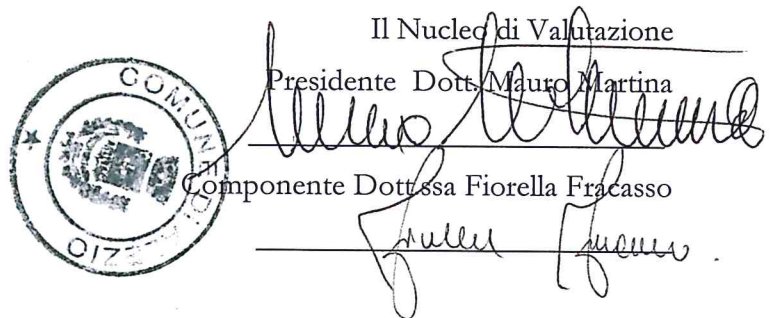 Il Nucleo di Valutazione
Presidente Dott. Mauro Martina
COMUNE DI
Componente Dott.ssa Fiorella Fracasso